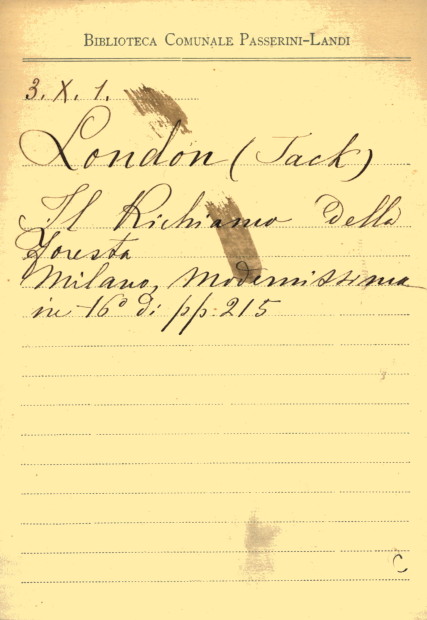 BIBLIOTECA COMUNALE PASSERINI-LANDI
3. X. 1.
London (Jack)
Il Richiamo Della
Foresta
Milano, Modernissima
in 16° di pp. 215
C